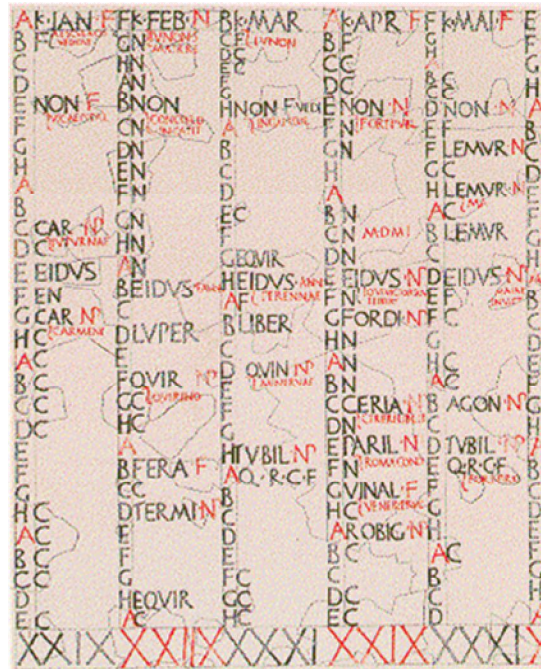 A K·IAN·F
B F
C
D
E NON F
F
G
H
A
B
C CAR NP
IVTVRNAE
D C
E EIDVS
F EN
G CAR NP
CARMENT
H C
A C
B C
C C
D C
E
F
G
H C
A C
B C
C C
D C
E C
XXIX
F K·FEB·N
IVNONI
G N
H N
A N
B NON
CONCORD
C N
D N
E N
F N
G N
H N
A N
B EIDVS
C
D LVPER
E
F QVIR NP
QVIRINO
G C
H C
A
B FERA F
C C
D TERMI N
E
F
G
H EQVIR
A C
XXIIX
B K·MAR
IVNON
C F
D C
E
F
G
H NON F
A
B
C
D
E C
F
G EQVIR
H EIDVS
PERENNAE
A F
B LIBER
C
D QVIN NP
MINERVAE
E
F
G
H TVBIL NP
A Q·R·C·F
B
C
D
E
F C
G C
H C
XXXI
A K·APR F
B F
C C
D C
E NON N
FORTVNAE
F N
G N
H
A
B N
C N
MDMI
D N
E EIDVS NP
F N
G FORDI NP
H N
A N
B N
C CERIA N
D N
E PARIL N
ROMA COND
F N
G VINAL F
H C
A ROBIG N
B C
C
D C
E C
XXIX
F K·MAI·F
G F
H
A
B C
C C
D NON N
E F
F LEMVR N
G
H LEMVR N
A C
B LEMVR
C
D EIDVS NP
E F
F C
G
H C
A C
B AGON NP
C
D TVBIL NP
E Q·R·C·F
F
G
H
A C
B
C
D
XXXI